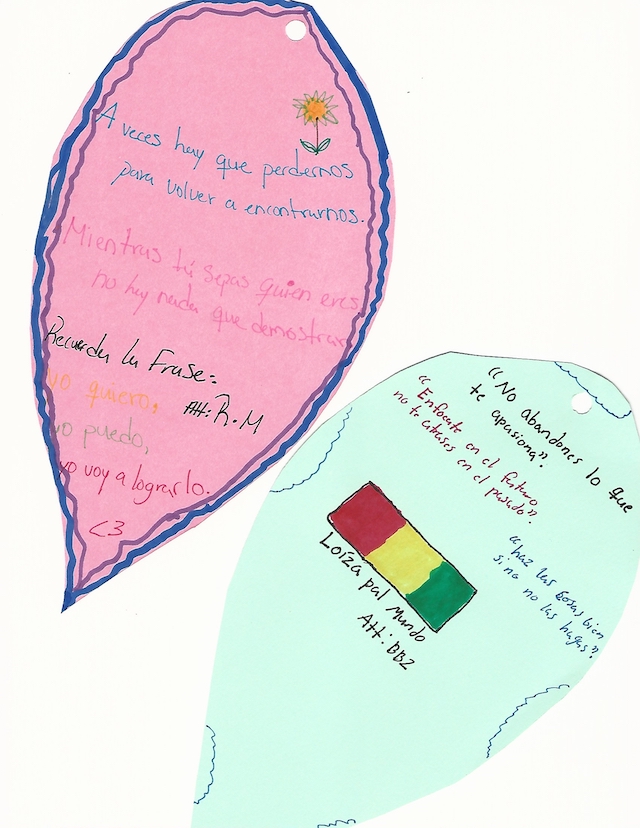 A veces hay que perdernos
para volver a encontrarnos.
Mientras tú sepas quien eres
no hay nada que demostrar
Recuerda la Frase:
yo quiero,
Att: R.M
yo puedo,
yo voy a lograrlo.
<3
"No abandones lo que
te apasiona".
"Enfocate en el futuro,
no te atrases en el pasado".
"haz las cosas bien
si no no las hagas"
Loíza pal Mundo
Att: BB2